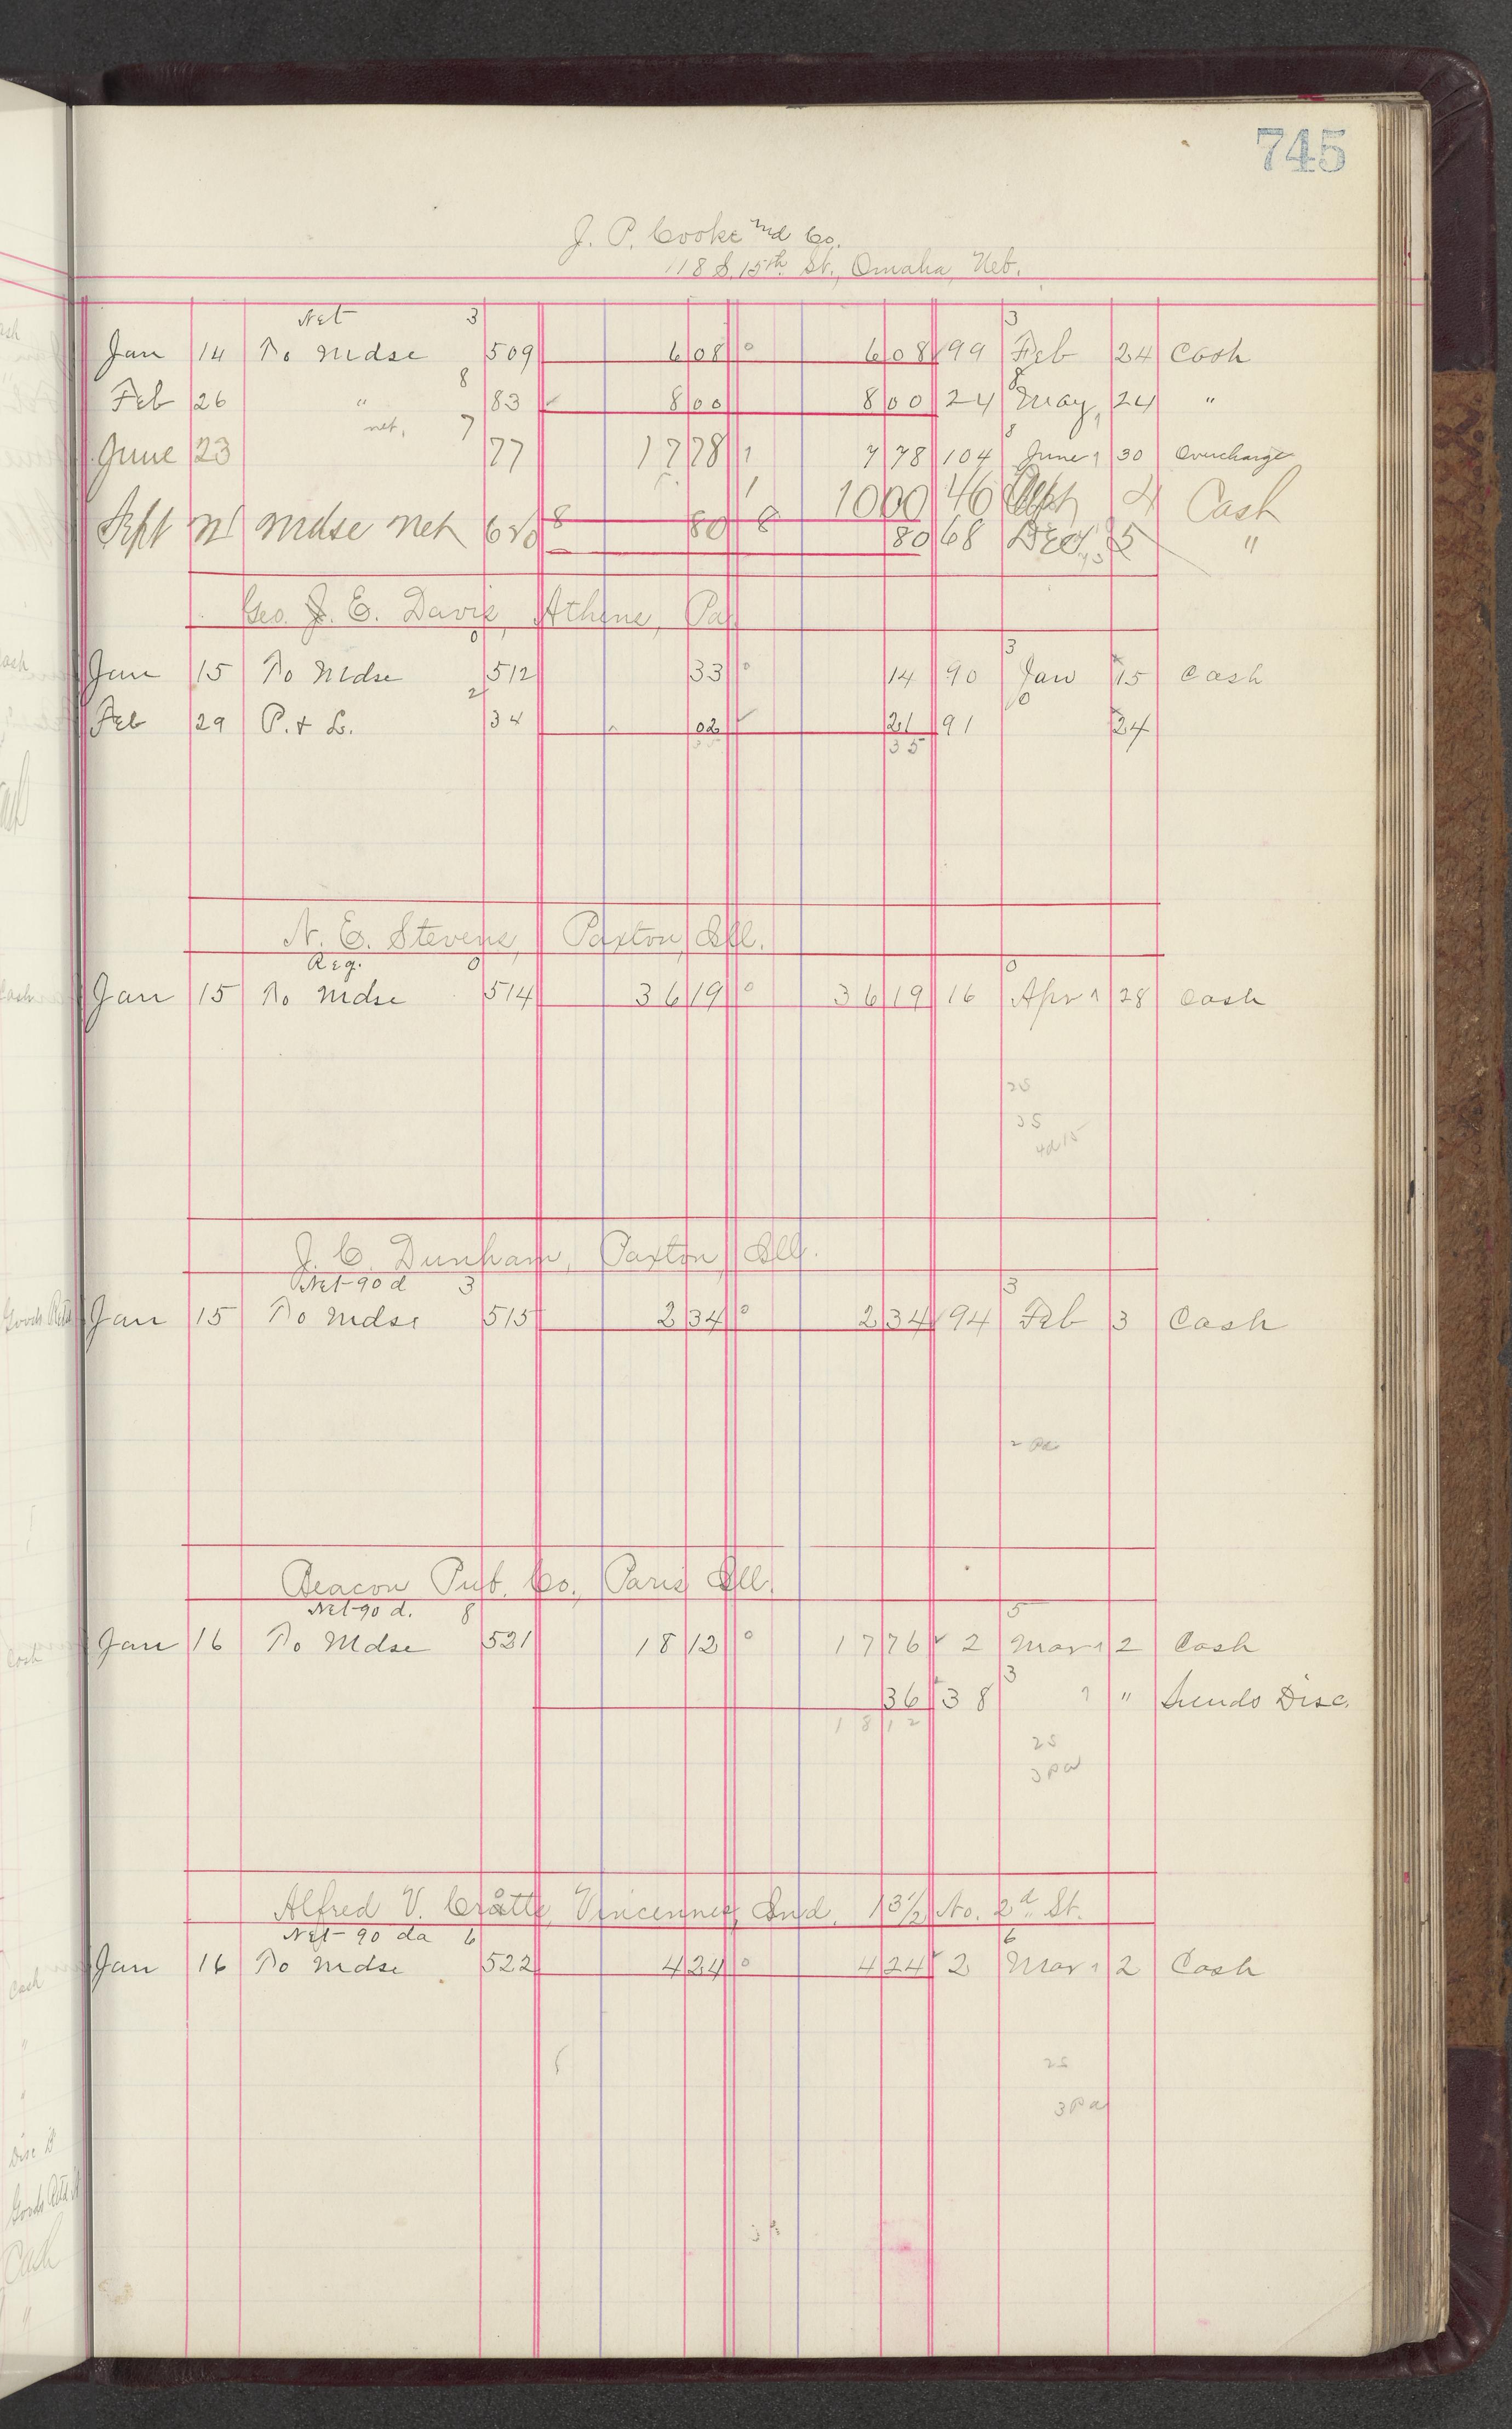 745
J. P. Cooke and Co.
118 S. 15th St., Omaha, Neb.
Net 3 3
Jan 14 To Mdse 509 6 08 0 6 08 99 Feb 24 Cash
8 8
Feb 26 " 83 8 00 8 00 24 May 24 "
net, 7 8
June 23 77 17 78 1 7 78 104 June 30 Overcharge
10 00 46 Sept 4 Cash
Sept mdse net 80 8 80 68 Dec 5 "
Geo. E. Davis, Athens, Pa.
0 3
Jan 15 To Mdse 512 33 0 14 90 Jan 15 Cash
2 0
Feb 29 P. & L. 34 02 21 91 24
35 35
N. E. Stevens, Paxton, Ill.
Reg. 0 0
Jan 15 To Mdse 514 36 19 0 36 19 16 Apr 28 Cash
25
35
J. C. Dunham, Paxton, Ill.
Net 90 d 3 3
Jan 15 To Mdse 515 2 34 0 2 34 94 Feb 3 Cash
Beacon Pub. Co., Paris Ill.
Net 90 d. 8 5
Jan 16 To Mdse 521 18 12 0 17 76 2 Mar 2 Cash
3
36 38 " Sunds Disc.
18 12
25
3 Pa
Alfred V. Crotts, Vincennes, Ind. 13 1/2 No. 2d St.
Net 90 da 6 6
Jan 16 To Mdse 522 4 24 0 4 24 2 Mar 2 Cash
25
3 Pa